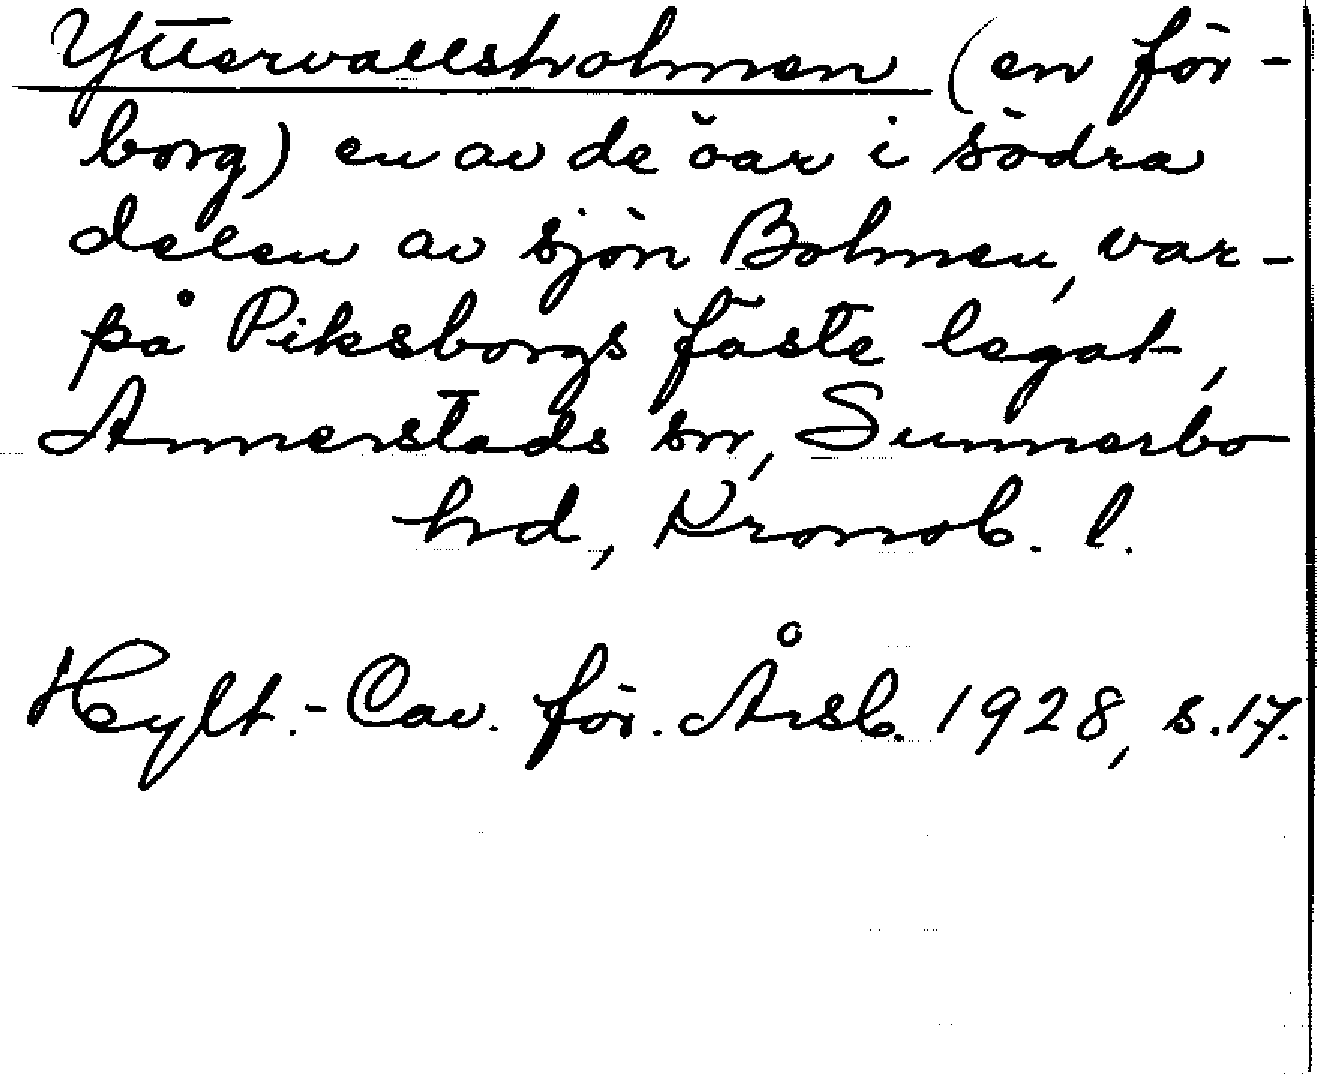 Yttervallsholmen (en för-
borg) en av de öar i södra
delen av sjön Bolmen, var-
på Piksborgs fäste legat,
Annerstads sn, Sunnerbo
hd, Kronob. l.
Hylt.-Cav. för. Årsb. 1928, s. 17.